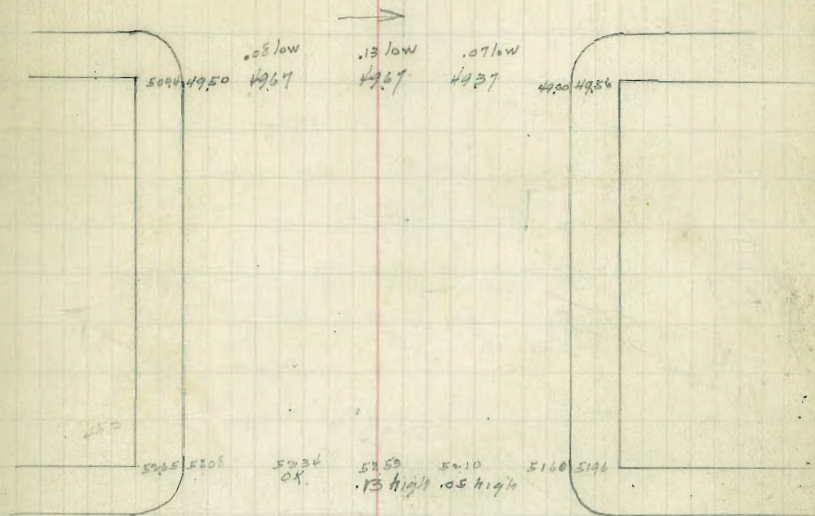 .08 low .13 low .07 low
5094 4950 4967 4967 4937 4900 4956
5265 5208 5234 5259 5210 5160 5196
OK. .13 high .05 high